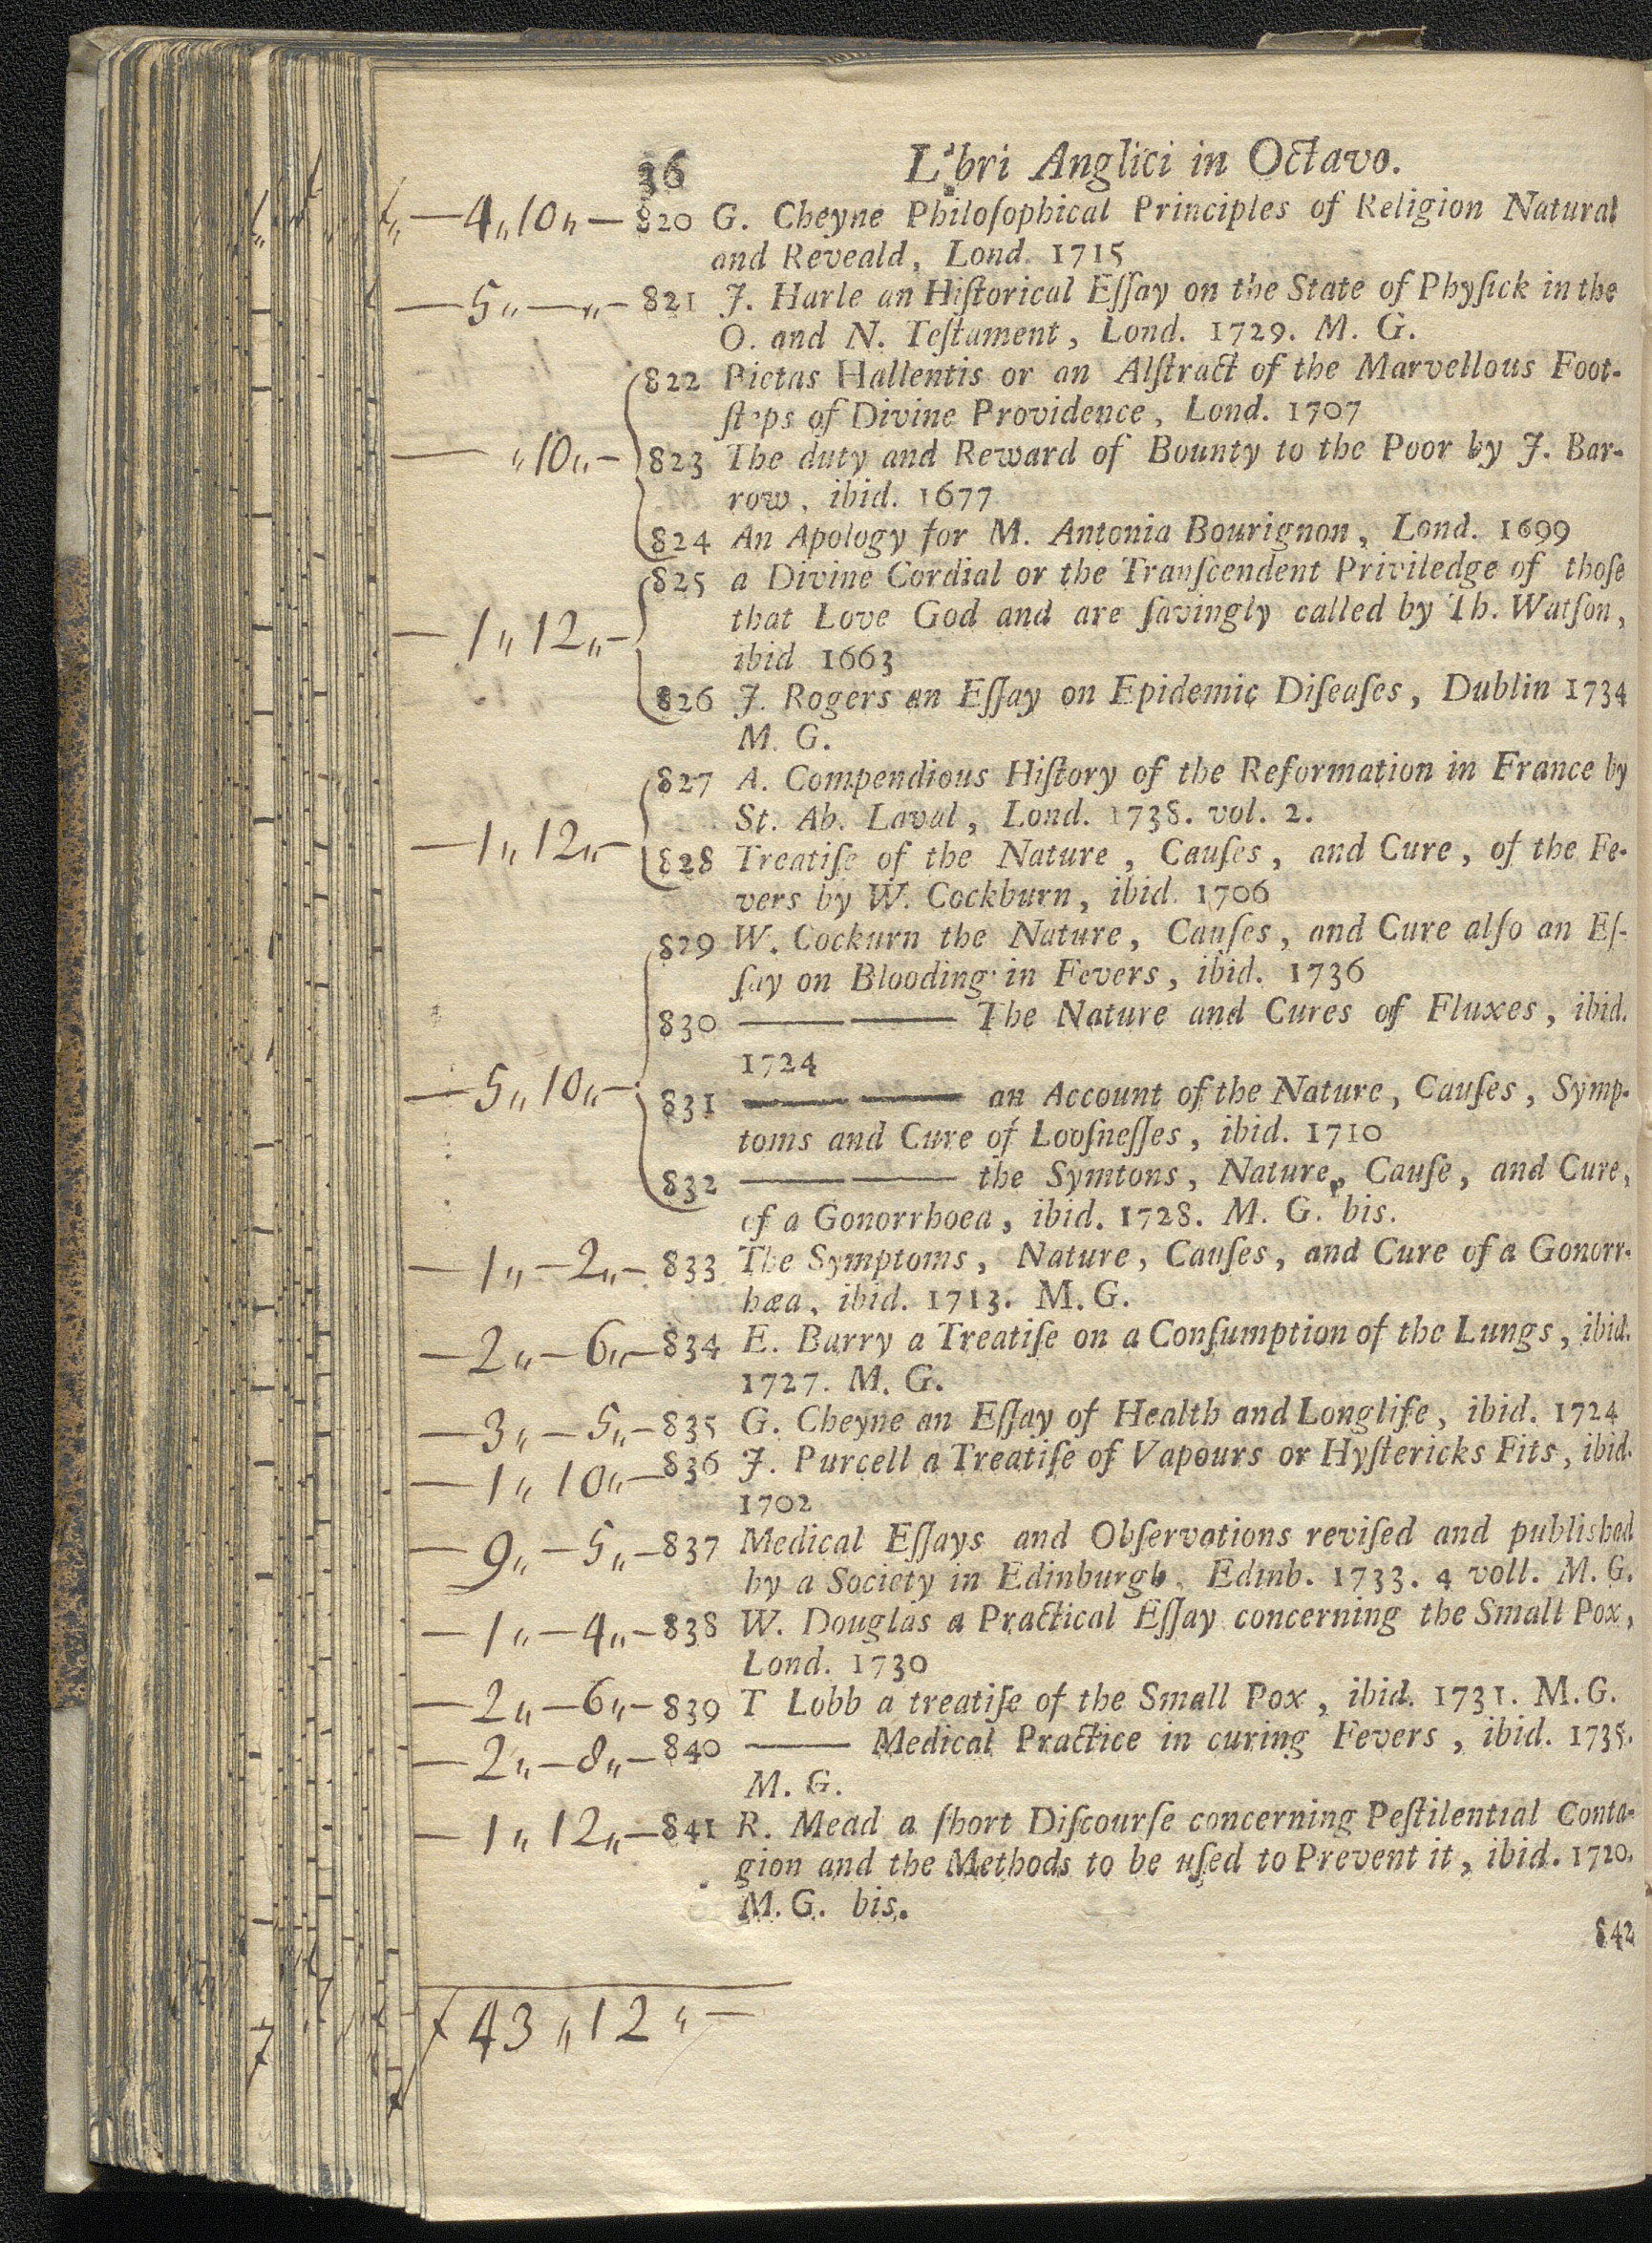 36 Libri Anglici in Octavo.
—4„10„— 820 G. Cheyne Philoſophical Principles of Religion Natural
and Reveald, Lond. 1715
—5„—„— 821 J. Harle an Hiſtorical Eſſay on the State of Phyſick in the
O. and N. Teſtament, Lond. 1729. M. G.
822 Pietas Hallentis or an Alſtract of the Marvellous Foot-
ſteps of Divine Providence, Lond. 1707
— „10„— 823 The duty and Reward of Bounty to the Poor by J. Bar-
row, ibid. 1677
824 An Apology for M. Antonia Bourignon, Lond. 1699
825 a Divine Cordial or the Tranſcendent Priviledge of thoſe
—1„12„— that Love God and are ſavingly called by Th. Watſon,
ibid 1663
826 J. Rogers an Eſſay on Epidemic Diſeaſes, Dublin 1734
M. G.
827 A. Compendious Hiſtory of the Reformation in France by
St. Ab. Laval, Lond. 1738. vol. 2.
—1„12„— 828 Treatiſe of the Nature, Cauſes, and Cure, of the Fe-
vers by W. Cockburn, ibid. 1706
829 W. Cockurn the Nature, Cauſes, and Cure alſo an Eſ-
ſay on Blooding in Fevers, ibid. 1736
830 —— —— The Nature and Cures of Fluxes, ibid.
1724
—5„10„— 831 —— —— an Account of the Nature, Cauſes, Symp-
toms and Cure of Looſneſſes, ibid. 1710
832 —— —— the Symtons, Nature, Cauſe, and Cure,
of a Gonorrhoea, ibid. 1728. M. G. bis.
—1„—2„— 833 The Symptoms, Nature, Cauſes, and Cure of a Gonorr-
hæa, ibid. 1713. M. G.
—2„—6„— 834 E. Barry a Treatiſe on a Conſumption of the Lungs, ibid.
1727. M. G.
—3„—5„— 835 G. Cheyne an Eſſay of Health and Longlife, ibid. 1724
—1„10„— 836 J. Purcell a Treatiſe of Vapours or Hyſtericks Fits, ibid.
1702
—9„—5„— 837 Medical Eſſays and Obſervations reviſed and published
by a Society in Edinburgh, Edinb. 1733. 4 voll. M. G.
—1„—4„— 838 W. Douglas a Practical Eſſay concerning the Small Pox,
Lond. 1730
—2„—6„— 839 T Lobb a treatiſe of the Small Pox, ibid. 1731. M. G.
—2„—8„— 840 —— Medical Practice in curing Fevers, ibid. 1735.
M. G.
—1„12„— 841 R. Mead a ſhort Diſcourſe concerning Peſtilential Conta-
gion and the Methods to be uſed to Prevent it, ibid. 1720.
M. G. bis.
842
ƒ 43„12„—